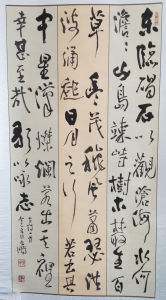 东臨碣石以觀滄海水何
澹澹山島竦峙樹木叢生百
草豐茂秋風蕭瑟洪
波涌起日月之行若出其
中星漢燦爛若出其裡
幸甚至哉歌以咏志